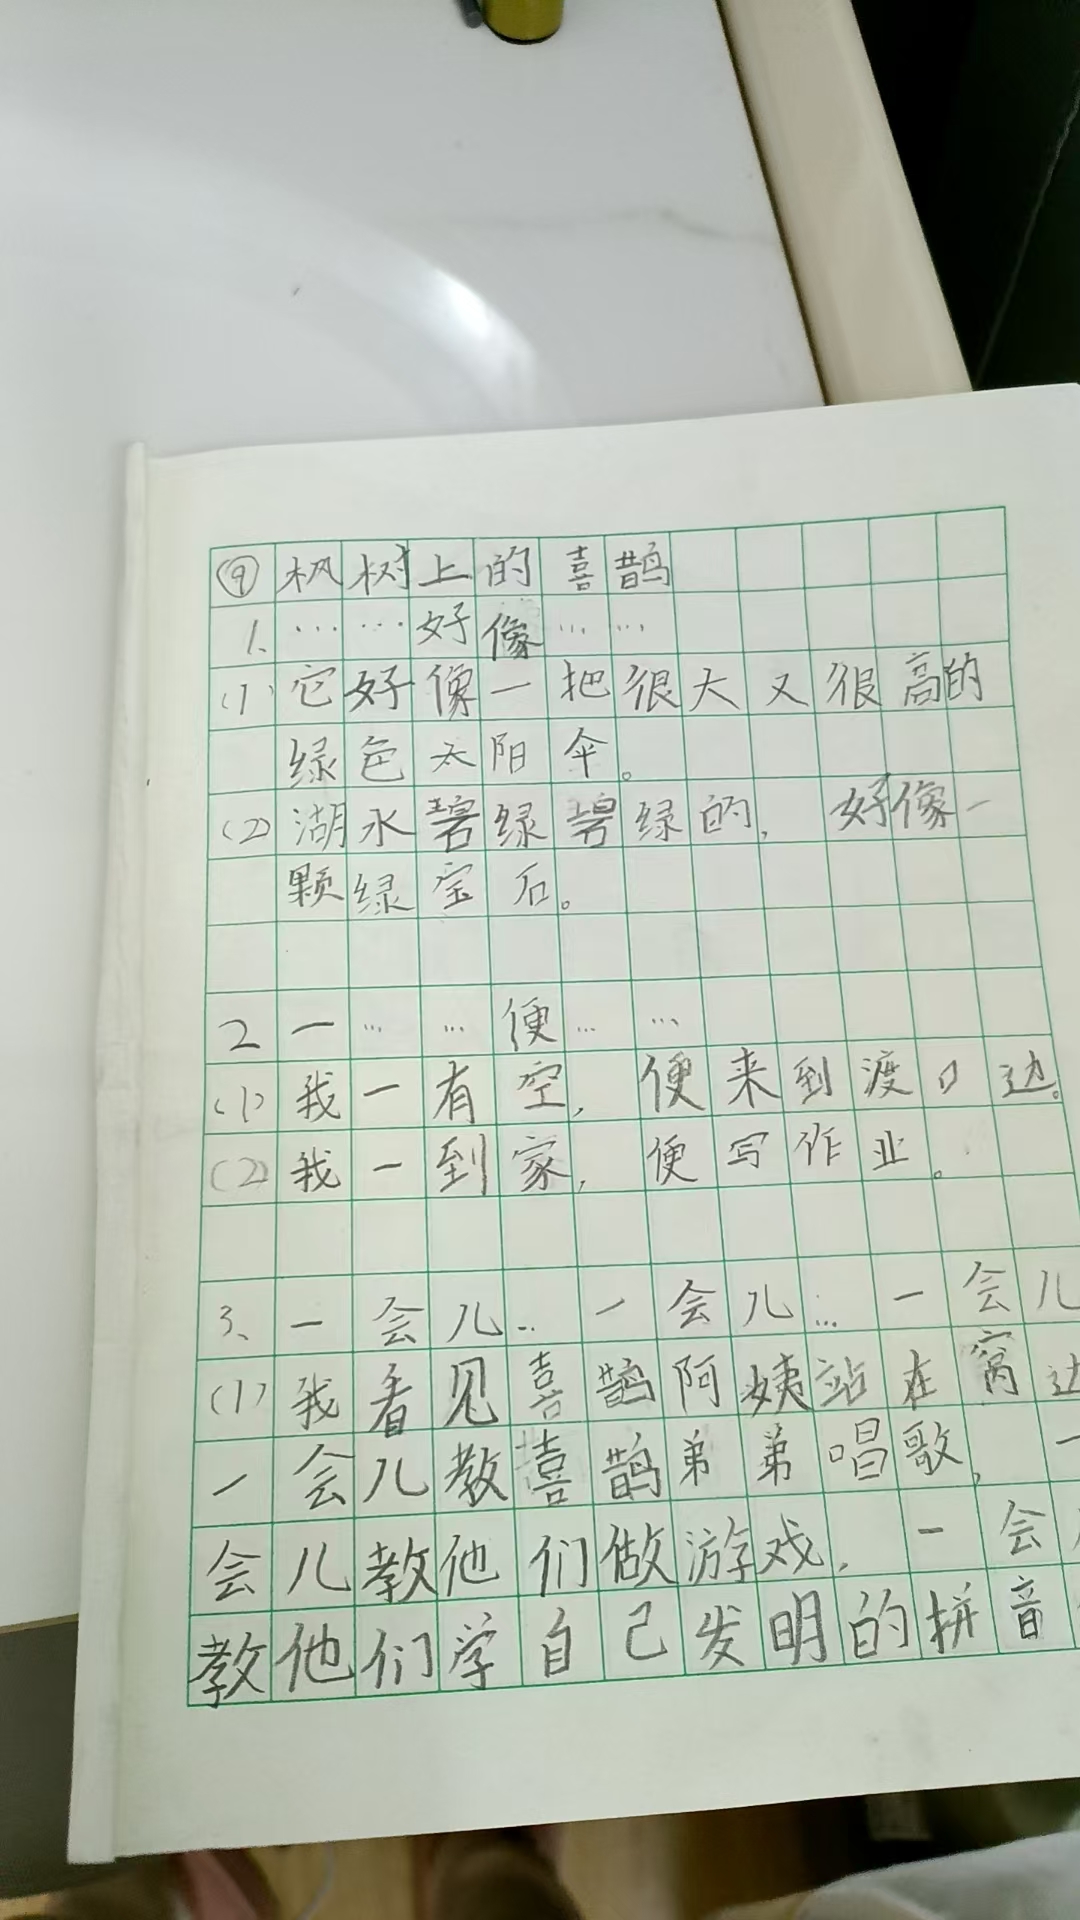 ⑨枫树上的喜鹊
1、……好像……
(1)它好像一把很大又很高的
绿色太阳伞。
(2)湖水碧绿碧绿的,好像一
颗绿宝石。
2 一……便……
(1)我一有空,便来到渡口边。
(2)我一到家,便写作业。
3、一会儿…一会儿…一会儿
(1)我看见喜鹊阿姨站在窝边
一会儿教喜鹊弟弟唱歌,一
会儿教他们做游戏,一会
教他们学自己发明的拼音